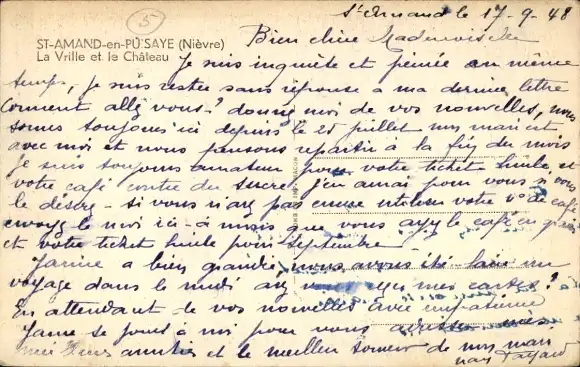 5
St-Amand le 17-9-48
ST-AMAND-en-PUISAYE (Nièvre)
La Vrille et le Château
Bien chère Mademoiselle
Je suis inquiète et peinée en même
temps, je suis restée sans réponse a ma dernière lettre
Comment allé vous? donné moi de vos nouvelles, nous
somes toujours ici depuis le 21 juillet mon mari est
avec moi et nous pensons repartir à la fin du mois
Je suis toujours amateur pour votre ticket huile et
votre café contre du sucre, j'en aurai pour vous si vous
le désirez - si vous n'avez pas encore utiliser votre de café
envoyz le moi ici - à mois que vous ayez le café en grains
et votre ticket huile pour Septembre
Janine a bien grandie, nous avons été faire un
voyage dans le midi avez vous reçu mes cartes?
En attendant de vos nouvelles avec impatience
Janine se joint à moi pour vous adresser nos
meilleures amitiés et le meilleur souvenir de mon mari